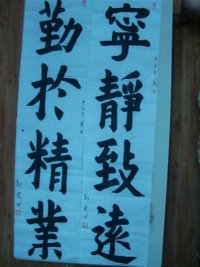 寧靜致遠
勤於精業